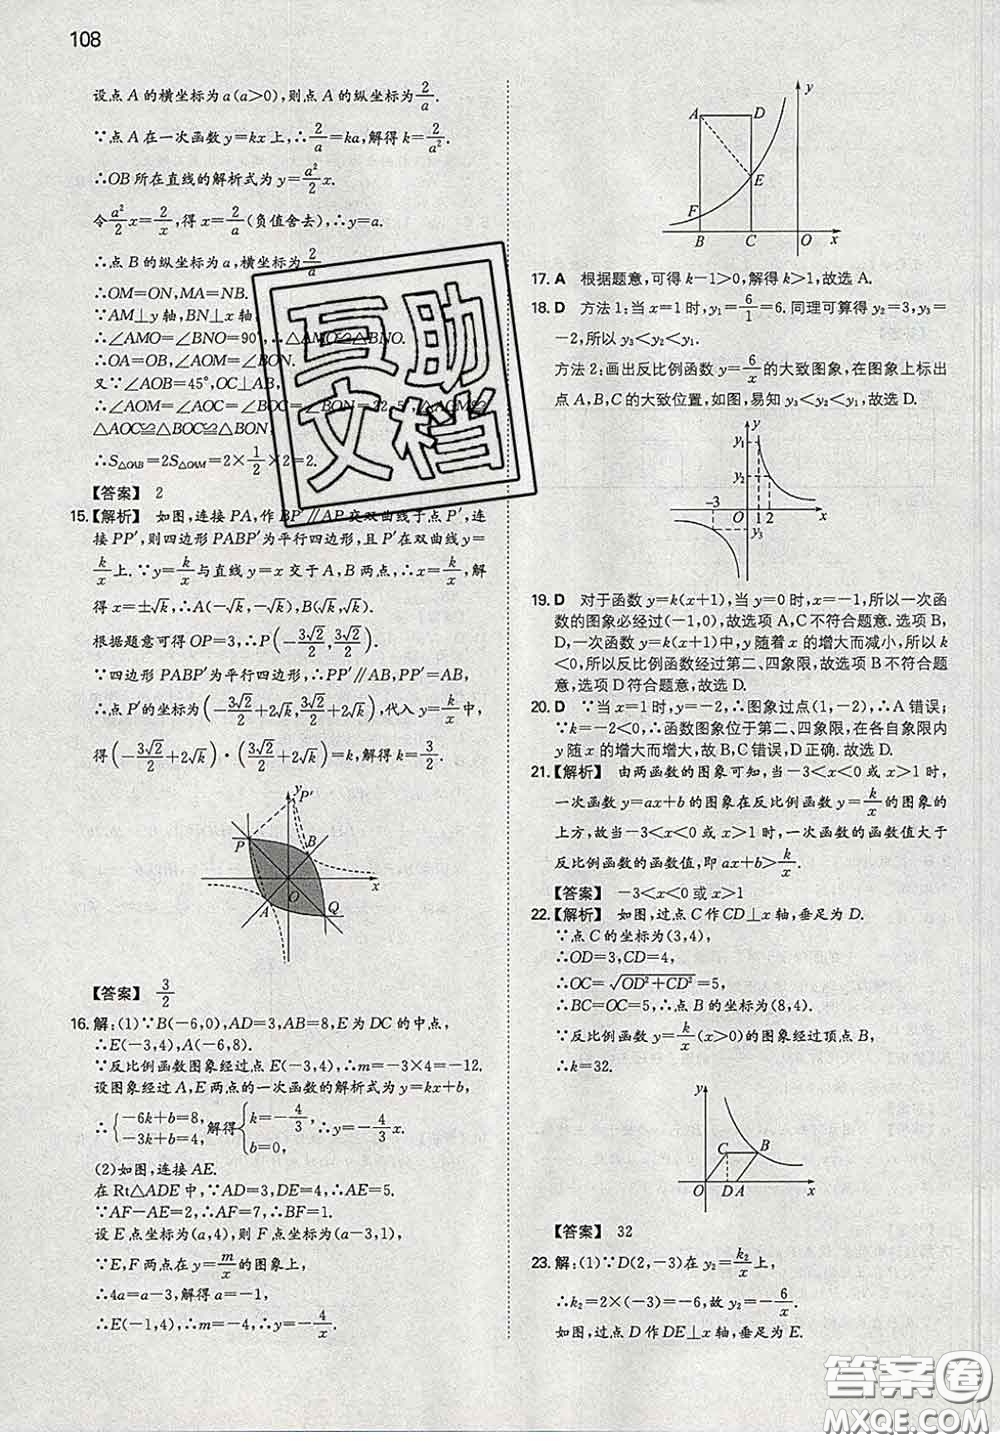 108
设点 A 的横坐标为 a(a>0),则点 A 的纵坐标为 2/a.
∵点 A 在一次函数 y=kx 上,∴2/a=ka,解得 k=2/a².
∴OB 所在直线的解析式为 y=a²/2 x.
令 a²/2 x=2/x,得 x=2/a(负值舍去),∴y=a.
∴点 B 的纵坐标为 a,横坐标为 2/a.
∴OM=ON,MA=NB.
∵AM⊥y 轴,BN⊥x 轴,
∴∠AMO=∠BNO=90°,∴△AMO≌△BNO.
∴OA=OB,∠AOM=∠BON.
又∵∠AOB=45°,OC⊥AB,
∴∠AOM=∠AOC=∠BOC=∠BON=22.5°,△AOM≌
△AOC≌△BOC≌△BON,
∴S△OAB=2S△OAM=2×1/2×2=2.
【答案】 2
15.【解析】 如图,连接 PA,作 BP′∥AP 交双曲线于点 P′,连
接 PP′,则四边形 PABP′为平行四边形,且 P′在双曲线 y=
k/x 上.∵y=k/x 与直线 y=x 交于 A,B 两点,∴k/x=x,解
得 x=±√k,∴A(-√k,-√k),B(√k,√k).
根据题意可得 OP=3,∴P(-3√2/2,3√2/2).
∵四边形 PABP′为平行四边形,∴PP′∥AB,PP′=AB,
∴点 P′的坐标为(-3√2/2+2√k,3√2/2+2√k),代入 y=k/x 中,
得(-3√2/2+2√k)·(3√2/2+2√k)=k,解得 k=3/2.
y P′
P B
x
A O Q
【答案】 3/2
16.解:(1)∵B(-6,0),AD=3,AB=8,E 为 DC 的中点,
∴E(-3,4),A(-6,8).
∵反比例函数图象经过点 E(-3,4),∴m=-3×4=-12.
设图象经过 A,E 两点的一次函数的解析式为 y=kx+b,
∴{-6k+b=8, -3k+b=4, 解得{k=-4/3, b=0, ∴y=-4/3 x.
(2)如图,连接 AE.
在 Rt△ADE 中,∵AD=3,DE=4,∴AE=5.
∵AF-AE=2,∴AF=7,∴BF=1.
设 E 点坐标为(a,4),则 F 点坐标为(a-3,1),
∵E,F 两点在 y=m/x 的图象上,
∴4a=a-3,解得 a=-1,
∴E(-1,4),∴m=-4,∴y=-4/x.
y
A D
E
F
B C O x
17. A 根据题意,可得 k-1>0,解得 k>1,故选 A.
18. D 方法 1:当 x=1 时,y₁=6/1=6.同理可算得 y₂=3,y₃=
-2,所以 y₃<y₂<y₁.
方法 2:画出反比例函数 y=6/x 的大致图象,在图象上标出
点 A,B,C 的大致位置,如图,易知 y₃<y₂<y₁,故选 D.
y
y₁
y₂
-3
O 1 2 x
y₃
19. D 对于函数 y=k(x+1),当 y=0 时,x=-1,所以一次函
数的图象必经过(-1,0),故选项 A,C 不符合题意.选项 B,
D,一次函数 y=k(x+1)中,y 随着 x 的增大而减小,所以 k
<0,所以反比例函数经过第二、四象限,故选项 B 不符合题
意,选项 D 符合题意,故选 D.
20. D ∵当 x=1 时,y=-2,∴图象过点(1,-2),∴A 错误;
∵k=-2<0,∴函数图象位于第二、四象限,在各自象限内
y 随 x 的增大而增大,故 B,C 错误,D 正确.故选 D.
21.【解析】 由两函数的图象可知,当-3<x<0 或 x>1 时,
一次函数 y=ax+b 的图象在反比例函数 y=k/x 的图象的
上方,故当-3<x<0 或 x>1 时,一次函数的函数值大于
反比例函数的函数值,即 ax+b>k/x.
【答案】 -3<x<0 或 x>1
22.【解析】 如图,过点 C 作 CD⊥x 轴,垂足为 D.
∵点 C 的坐标为(3,4),
∴OD=3,CD=4,
∴OC=√OD²+CD²=5,
∴BC=OC=5,∴点 B 的坐标为(8,4).
∵反比例函数 y=k/x(x>0)的图象经过顶点 B,
∴k=32.
y
C B
O D A x
【答案】 32
23.解:(1)∵D(2,-3)在 y₂=k₂/x 上,
∴k₂=2×(-3)=-6,故 y₂=-6/x.
如图,过点 D 作 DE⊥x 轴,垂足为 E.
互助
文档
答案卷
MXQE.COM